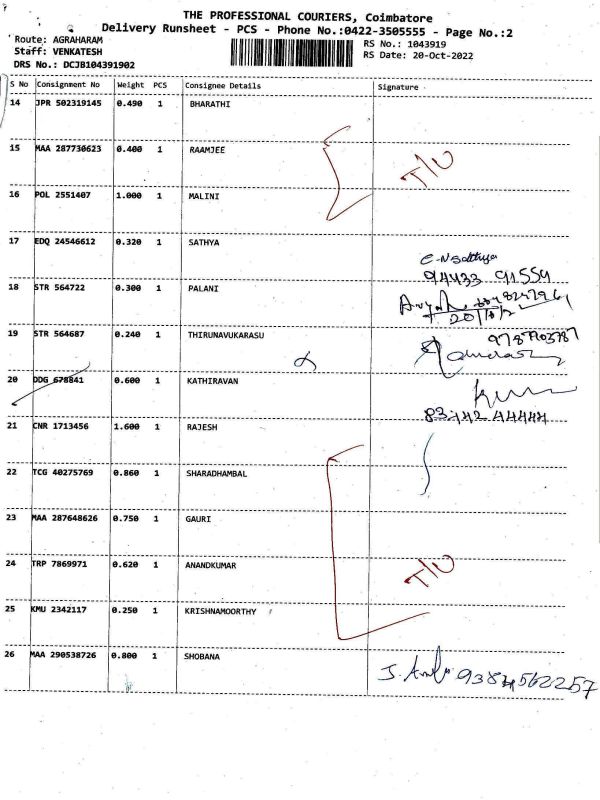 THE PROFESSIONAL COURIERS, Coimbatore
Delivery Runsheet - PCS - Phone No.:0422-3505555 - Page No.:2
Route: AGRAHARAM
RS No.: 1043919
Staff: VENKATESH
RS Date: 20-Oct-2022
DRS No.: DCJB104391902
S No Consignment No Weight PCS Consignee Details Signature
14 JPR 502319145 0.490 1 BHARATHI
15 MAA 287730623 0.400 1 RAAMJEE
T/U
16 POL 2551407 1.000 1 MALINI
17 EDQ 24546612 0.320 1 SATHYA
94433 91559
18 STR 564722 0.300 1 PALANI
19 STR 564687 0.240 1 THIRUNAVUKARASU
9787703787
20 DDG 678841 0.600 1 KATHIRAVAN
21 CNR 1713456 1.600 1 RAJESH
22 TCG 40275769 0.860 1 SHARADHAMBAL
23 MAA 287648626 0.750 1 GAURI
24 TRP 7869971 0.620 1 ANANDKUMAR
T/U
25 KMU 2342117 0.250 1 KRISHNAMOORTHY
26 MAA 290538726 0.800 1 SHOBANA